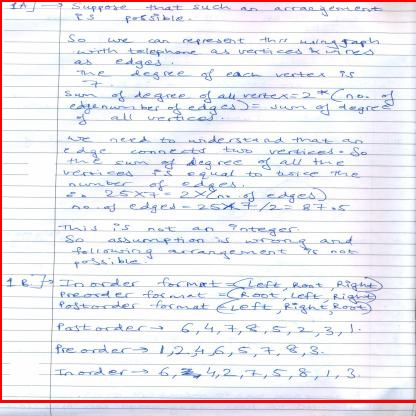 1A] → Suppose that such an arrangement
is possible.
So we can represent this using graph
with telephone as vertices & wires
as edges.
The degree of each vertex is
7.
Sum of degree of all vertex = 2 * (no. of
edgenumber of edges) = sum of degree
of all vertices.
We need to understand that an
edge connects two vertices. So
the sum of degree of all the
vertices is equal to twice the
number of edges.
25X7 = 2X(no. of edges)
no. of edges = 25X7/2 = 87.5
This is not an integer.
So assumption is wrong and
following arrangement is not
possible.
1B] → In order format = (Left, Root, Right)
Preorder format = (Root, Left, Right)
Postorder format = (Left, Right, Root)
Post order → 6, 4, 7, 8, 5, 2, 3, 1.
Pre order → 1, 2, 4, 6, 5, 7, 8, 3.
In order → 6, 4, 2, 7, 5, 8, 1, 3.